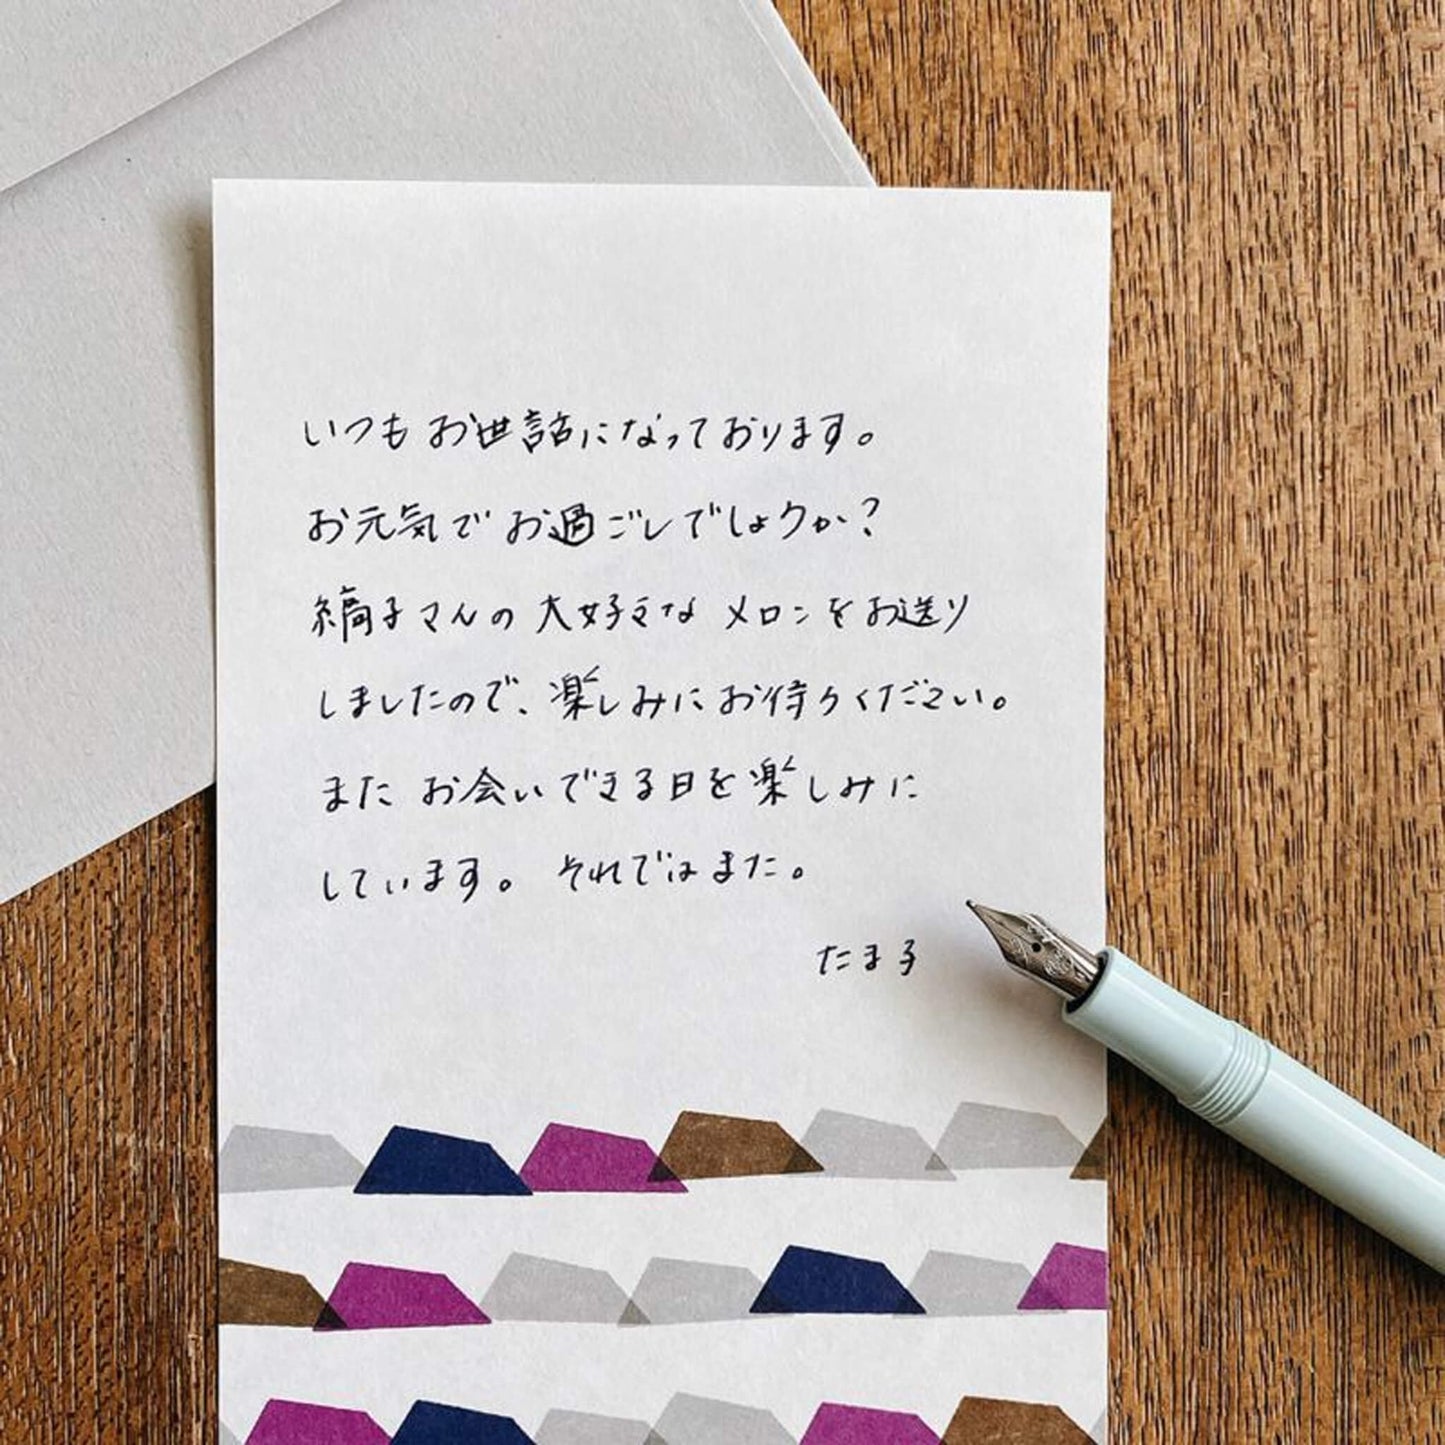 いつもお世話になっております。
お元気でお過ごしでしょうか?
縞子さんの大好きなメロンをお送り
しましたので、楽しみにお待ちください。
またお会いできる日を楽しみに
しています。それではまた。
たま子